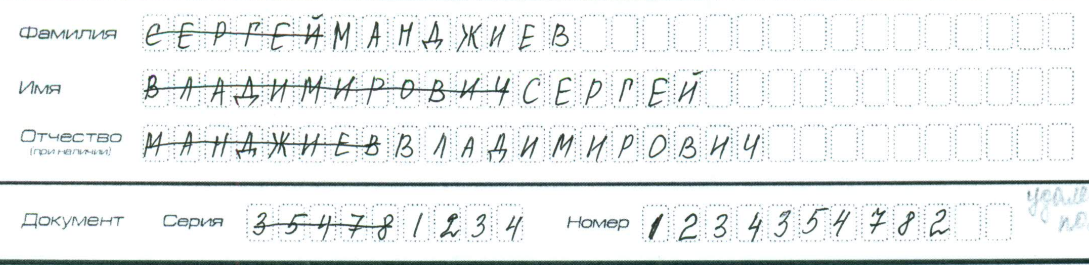 Фамилия СЕРГЕЙМАНДЖИЕВ
Имя ВЛАДИМИРОВИЧСЕРГЕЙ
Отчество МАНДЖИЕВВЛАДИМИРОВИЧ
(при наличии)
Документ Серия 354781234 Номер 1234354782